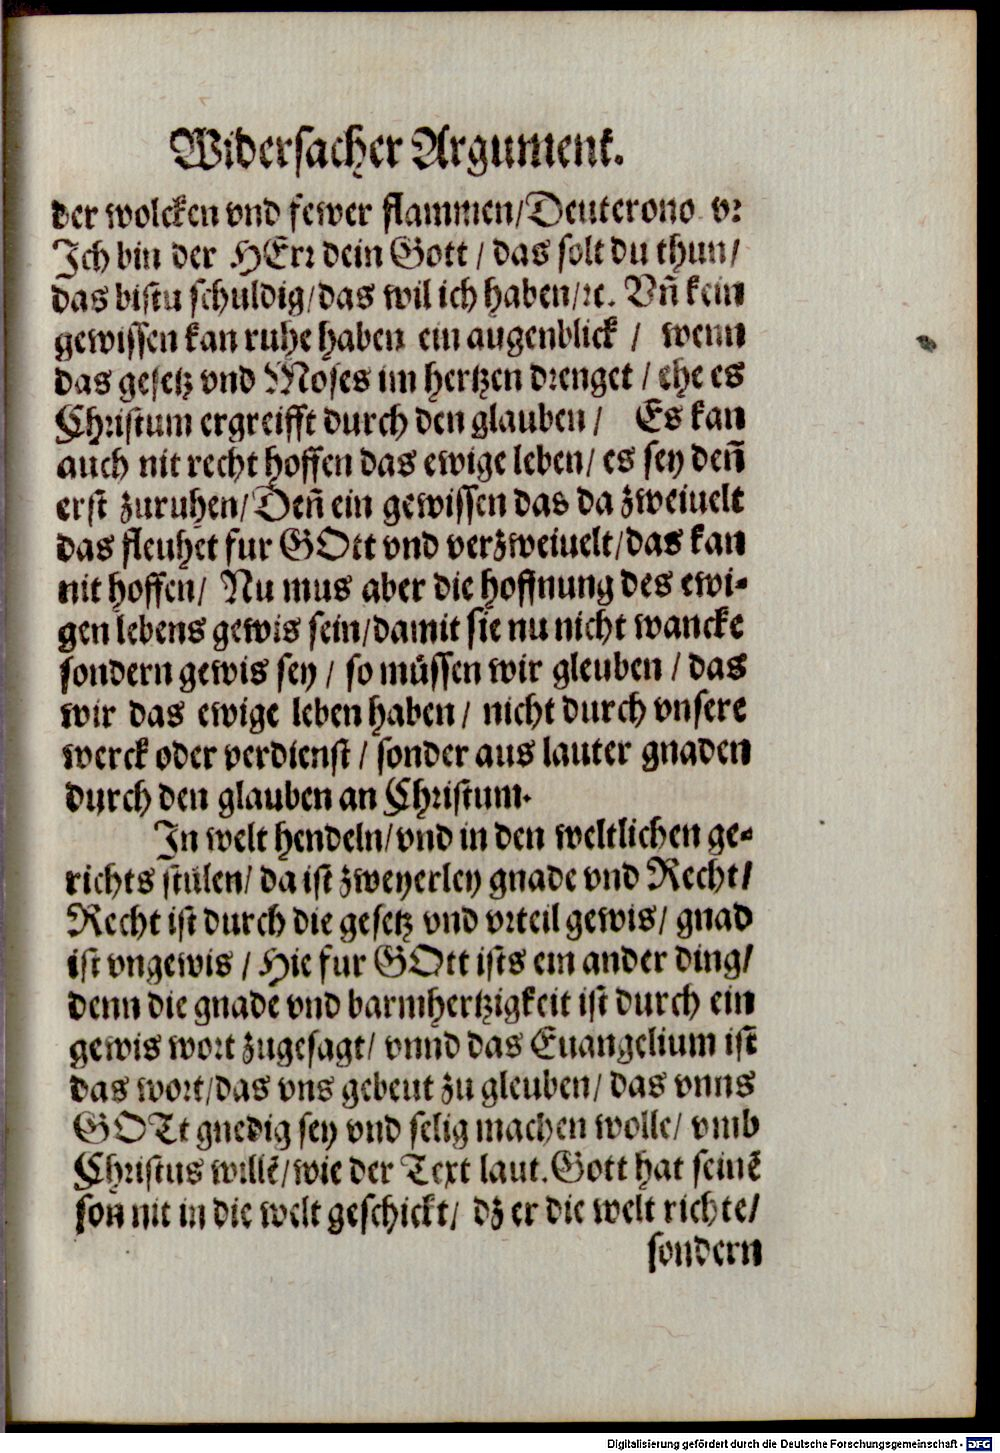 Widersacher Argument.
der wolcken vnd fewer flammen/Deuterono v:
Ich bin der HErr dein Gott / das solt du thun/
das bistu schuldig/das wil ich haben/ꝛc. Vn̄ kein
gewissen kan ruhe haben ein augenblick / wenn
das gesetz vnd Moses im hertzen drenget / ehe es
Christum ergreifft durch den glauben / Es kan
auch nit recht hoffen das ewige leben/ es sey den̄
erst zuruhen/Den̄ ein gewissen das da zweiuelt
das fleuhet fur GOtt vnd verzweiuelt/das kan
nit hoffen/ Nu mus aber die hoffnung des ewi-
gen lebens gewis sein/damit sie nu nicht wancke
sondern gewis sey / so muͤssen wir gleuben / das
wir das ewige leben haben / nicht durch vnsere
werck oder verdienst / sonder aus lauter gnaden
durch den glauben an Christum.
In welt hendeln/vnd in den weltlichen ge-
richts stülen/ da ist zweyerley gnade vnd Recht/
Recht ist durch die gesetz vnd vrteil gewis/ gnad
ist vngewis / Hie fur GOtt ists ein ander ding/
denn die gnade vnd barmhertzigkeit ist durch ein
gewis wort zugesagt/ vnnd das Euangelium ist
das wort/das vns gebeut zu gleuben/ das vnns
GOTt gnedig sey vnd selig machen wolle/ vmb
Christus willē/wie der Text laut. Gott hat seinē
son nit in die welt geschickt/ dz er die welt richte/
sondern
Digitalisierung gefördert durch die Deutsche Forschungsgemeinschaft - DFG